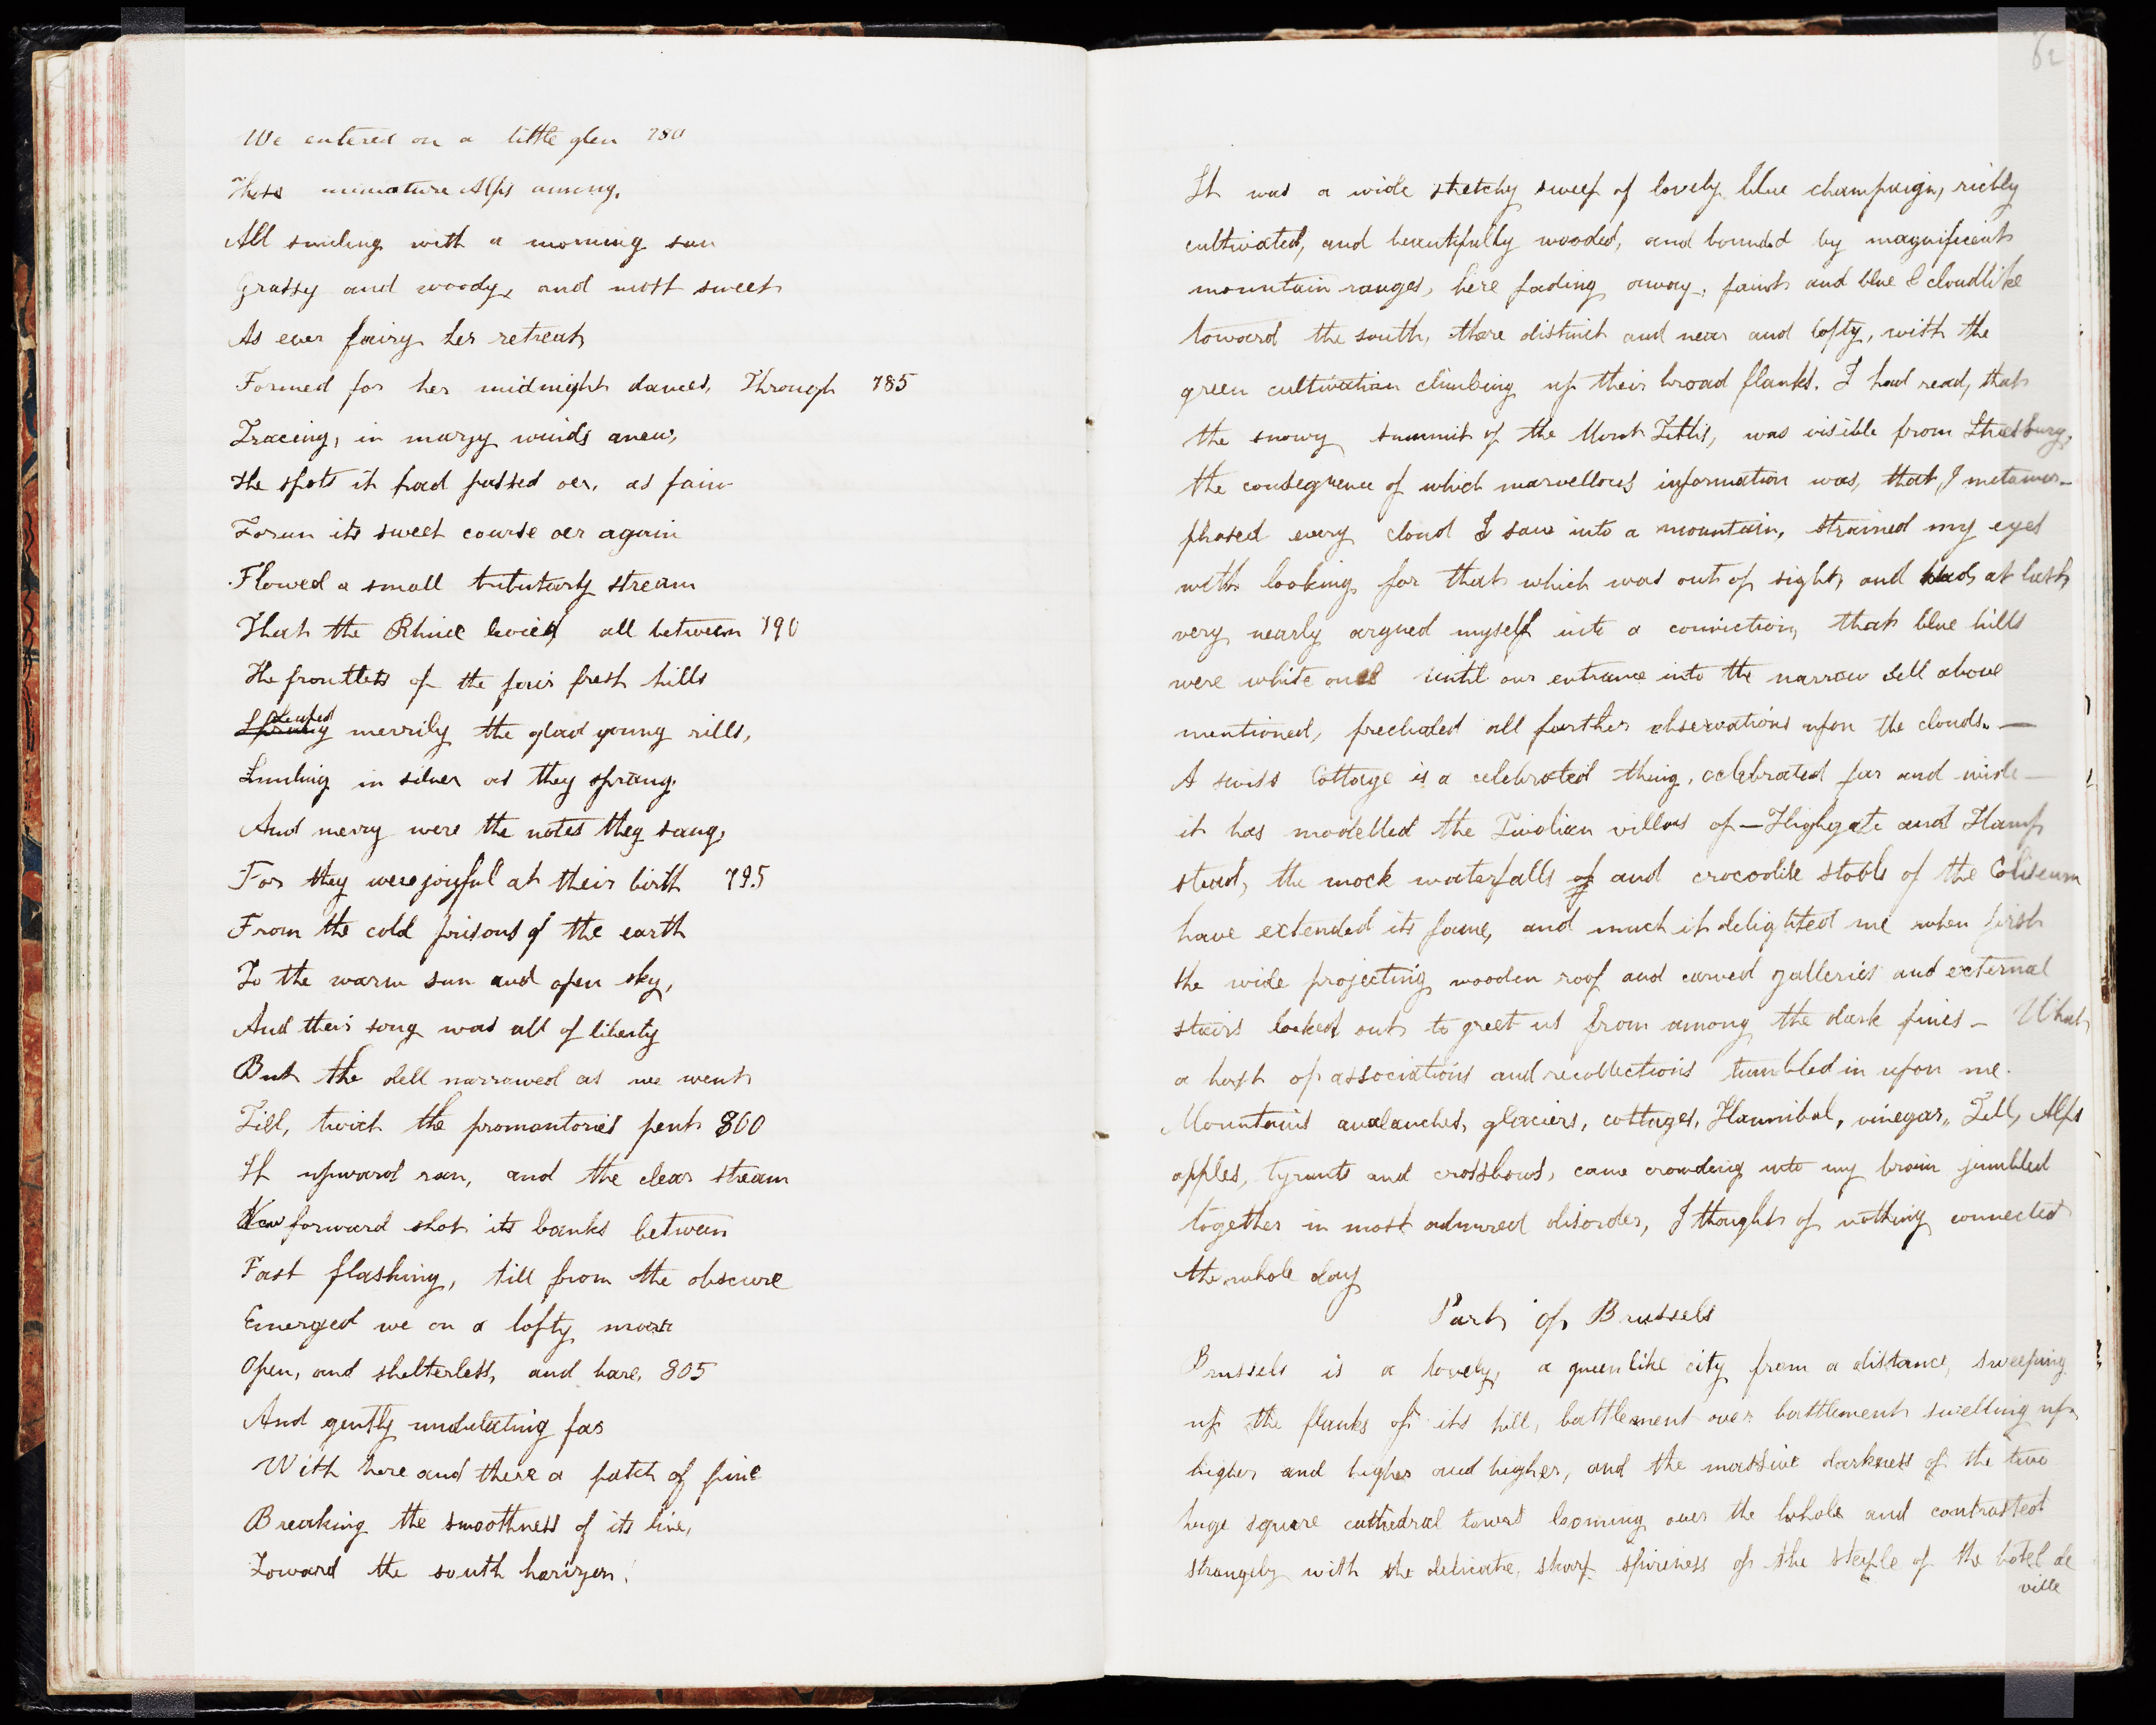 We entered on a little glen 780
These miniature Alps among.
All smiling with a morning sun
Grassy and woody, and most sweet
As ever fairy her retreat
Formed for her midnight dances, Through 785
Tracing, in mazy winds anew,
The spots it had passed oer, as fain
Torun its sweet course oer again
Flowed a small tributary stream
That the Rhine loved, all between 790
The frontlets of the fair fresh hills
Sprung Leaped merrily the glad young rills,
Smiling in silver as they sprang.
And merry were the notes they sang,
For they were joyful at their birth 795
From the cold prisons of the earth
To the warm sun and open sky,
And their song was all of liberty
But the dell narrowed as we went
Till, twixt the promontories pent 800
It upward ran, and the clear stream
Now forward shot its banks between
Fast flashing, till from the obscure
Emerged we on a lofty moor
Open, and shelterless, and bare, 805
And gently undulating far
With here and there a patch of pine
Breaking the smoothness of its line,
Toward the south horizon.
62
It was a wide stretchy sweep of lovely blue champaign, richly
cultivated, and beautifully wooded, and bounded by magnificent
mountain ranges, here fading away, faint and blue & cloudlike
toward the south, there distinct and near and lofty, with the
green cultivation climbing up their broad flanks. I had read, that
the snowy summit of the Mont Titlis, was visible from Strasburg,
the consequence of which marvellous information was, that, I metamor-
phosed every cloud I saw into a mountain, strained my eyes
with looking for that which was out of sight, and had, at last,
very nearly argued myself into a conviction, that blue hills
were white ones until our entrance into the narrow dell above
mentioned, precluded all further observations upon the clouds. —
A swiss Cottage is a celebrated thing, celebrated far and wide —
it has modelled the Tivolian villas of — Highgate and Hamp
stead, the mock waterfalls of and crocodile stable of the Coliseum
have extended its fame, and much it delighted me when first
the wide projecting wooden roof and carved galleries and external
stairs looked out to greet us from among the dark pines — What
a host of associations and recollections tumbled in upon me.
Mountains avalanches, glaciers, cottages, Hannibal, vinegar, Tell, Alps
apples, tyrants and crossbows, came crowding into my brain jumbled
together in most admired disorder, I thought of nothing connected
the whole day
Part of Brussels
Brussels is a lovely, a queenlike city from a distance, sweeping
up the flanks of its hill, battlement over battlement swelling up
higher and higher and higher, and the massive darkness of the two
huge square cathedral towers looming over the whole and contrasted
strangely with the delicate, sharp spireiness of the steeple of the hotel de
ville